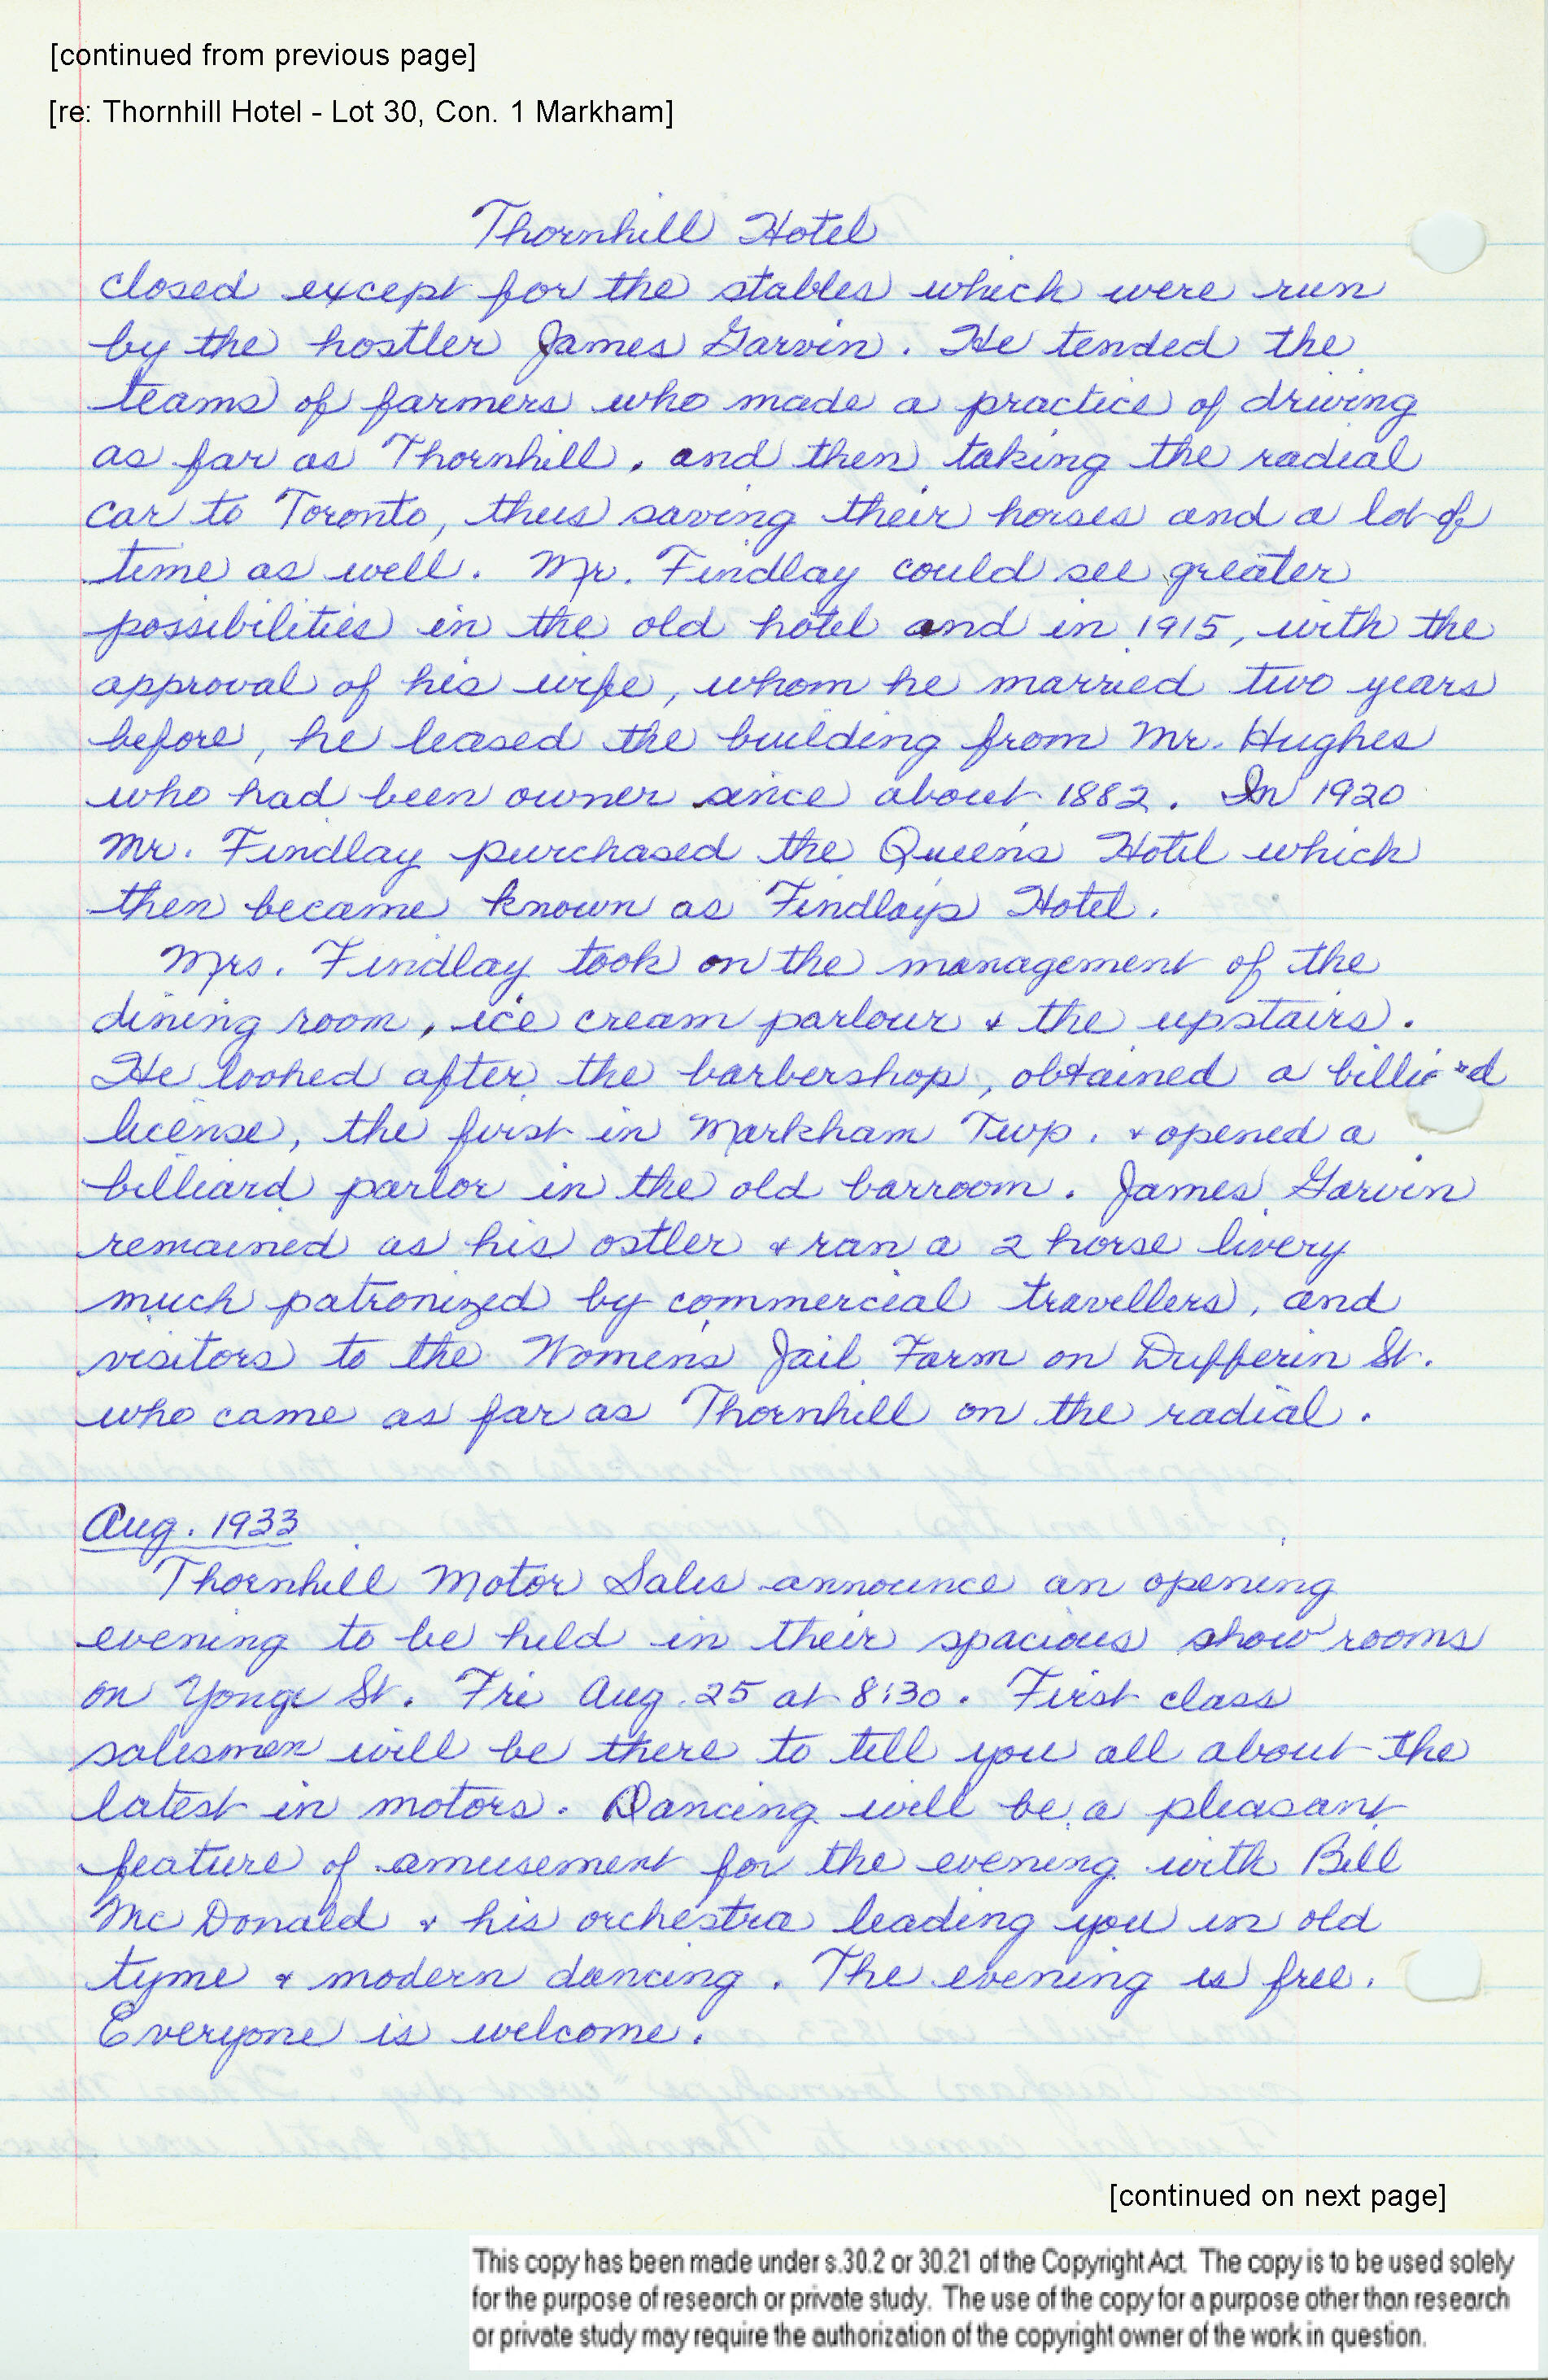 [continued from previous page]
[re: Thornhill Hotel - Lot 30, Con. 1 Markham]
Thornhill Hotel
closed except for the stables which were run
by the hostler James Garvin. He tended the
teams of farmers who made a practice of driving
as far as Thornhill, and then taking the radial
car to Toronto, thus saving their horses and a lot of
time as well. Mr. Findlay could see greater
possibilities in the old hotel and in 1915, with the
approval of his wife, whom he married two years
before, he leased the building from Mr. Hughes
who had been owner since about 1882. In 1920
Mr. Findlay purchased the Queen's Hotel which
then became known as Findlay's Hotel.
Mrs. Findlay took on the management of the
dining room, ice cream parlour & the upstairs.
He looked after the barbershop, obtained a billiard
license, the first in Markham Twp. & opened a
billiard parlor in the old barroom. James Garvin
remained as his ostler & ran a 2 horse livery
much patronized by commercial travellers, and
visitors to the Womens Jail Farm on Dufferin St.
who came as far as Thornhill on the radial.
Aug. 1933
Thornhill Motor Sales announce an opening
evening to be held in their spacious show rooms
on Yonge St. Fri Aug. 25 at 8:30. First class
salesmen will be there to tell you all about the
latest in motors. Dancing will be a pleasant
feature of amusement for the evening with Bill
McDonald & his orchestra leading you in old
tyme & modern dancing. The evening is free.
Everyone is welcome.
[continued on next page]
This copy has been made under s.30.2 or 30.21 of the Copyright Act. The copy is to be used solely
for the purpose of research or private study. The use of the copy for a purpose other than research
or private study may require the authorization of the copyright owner of the work in question.